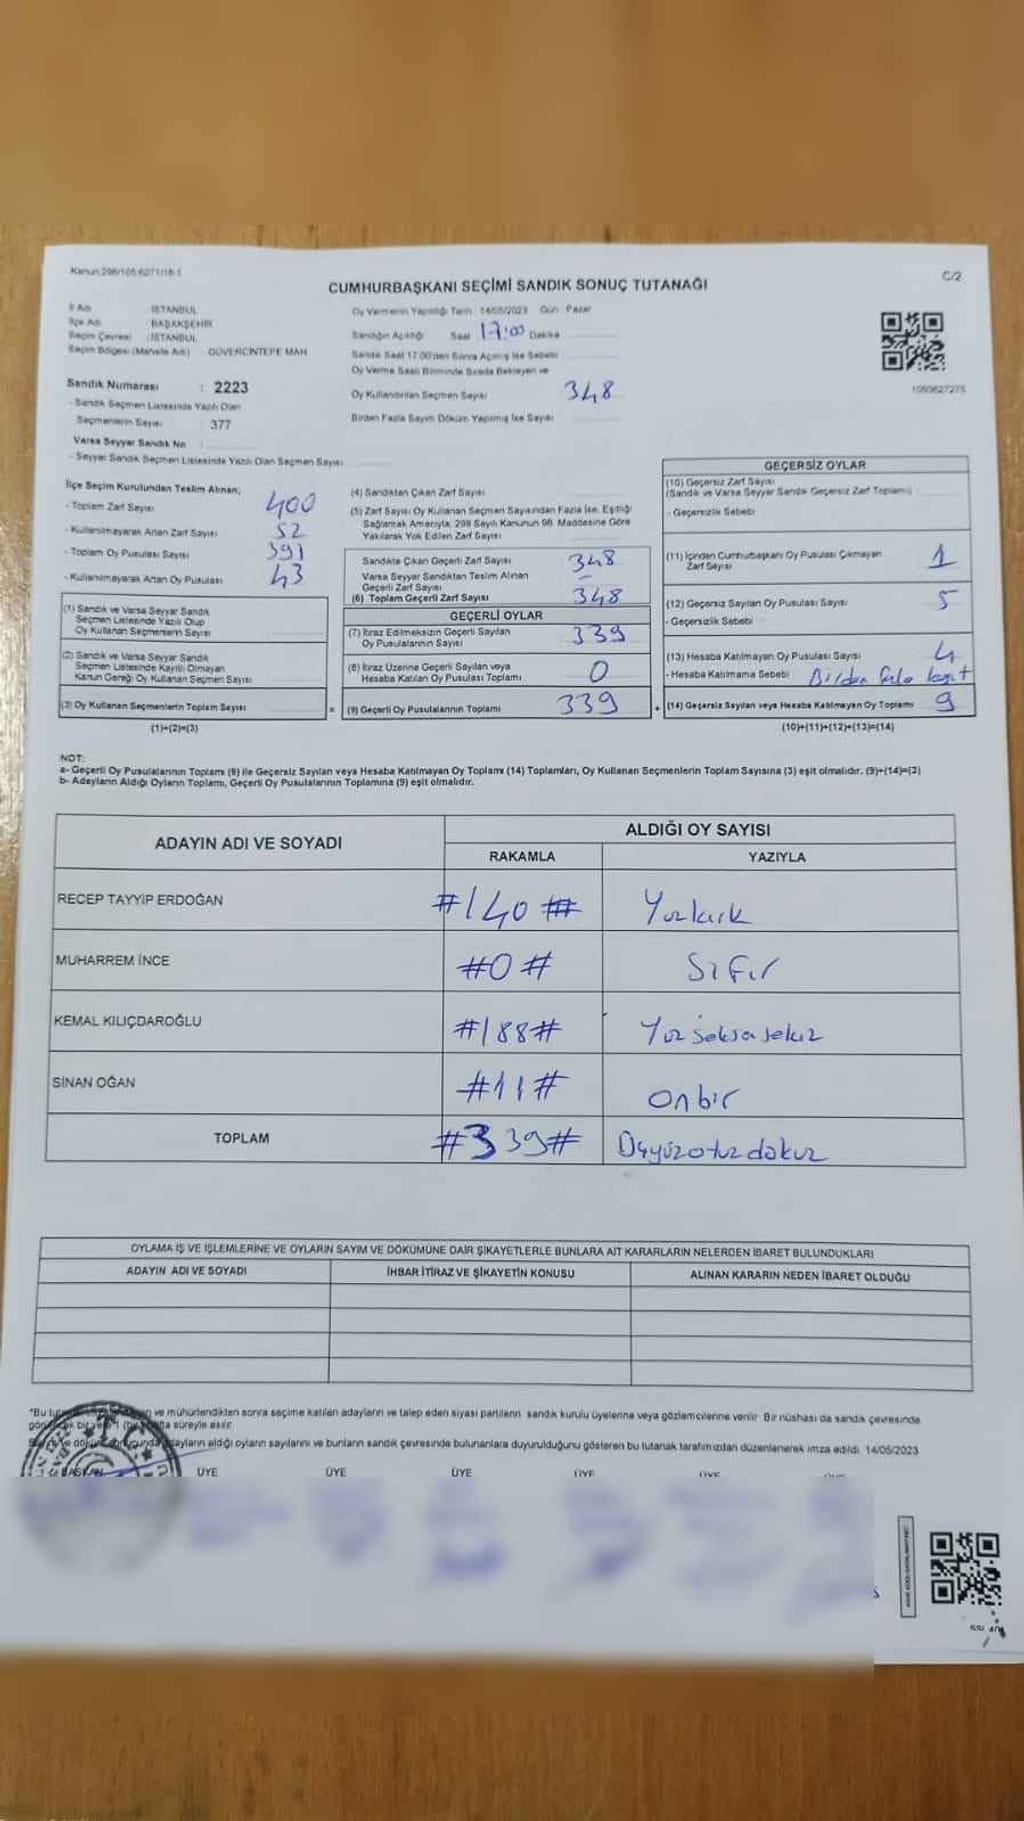 Kanun:298/105:6271/18-1
C/2
CUMHURBAŞKANI SEÇİMİ SANDIK SONUÇ TUTANAĞI
İl Adı : İSTANBUL
İlçe Adı : BAŞAKŞEHİR
Seçim Çevresi : İSTANBUL
Seçim Bölgesi (Mahalle Adı) : GÜVERCİNTEPE MAH
Oy Vermenin Yapıldığı Tarih : 14/05/2023 Gün : Pazar
Sandığın Açıldığı Saat 17:00 Dakika
Sandık Saat 17.00'den Sonra Açılmış İse Sebebi
Oy Verme Saati Bitiminde Sırada Bekleyen ve
Oy Kullandırılan Seçmen Sayısı 348
Birden Fazla Sayım Döküm Yapılmış İse Sayısı
1093627275
Sandık Numarası : 2223
- Sandık Seçmen Listesinde Yazılı Olan
Seçmenlerin Sayısı : 377
Varsa Seyyar Sandık No :
- Seyyar Sandık Seçmen Listesinde Yazılı Olan Seçmen Sayısı
İlçe Seçim Kurulundan Teslim Alınan;
- Toplam Zarf Sayısı 400
- Kullanılmayarak Artan Zarf Sayısı 52
- Toplam Oy Pusulası Sayısı 391
- Kullanılmayarak Artan Oy Pusulası 43
(1) Sandık ve Varsa Seyyar Sandık
Seçmen Listesinde Yazılı Olup
Oy Kullanan Seçmenlerin Sayısı
(2) Sandık ve Varsa Seyyar Sandık
Seçmen Listesinde Kayıtlı Olmayan
Kanun Gereği Oy Kullanan Seçmen Sayısı
(3) Oy Kullanan Seçmenlerin Toplam Sayısı
(1)+(2)=(3)
(4) Sandıktan Çıkan Zarf Sayısı
(5) Zarf Sayısı Oy Kullanan Seçmen Sayısından Fazla İse, Eşitliği
Sağlamak Amacıyla, 298 Sayılı Kanunun 98. Maddesine Göre
Yakılarak Yok Edilen Zarf Sayısı
Sandıkta Çıkan Geçerli Zarf Sayısı 348
Varsa Seyyar Sandıktan Teslim Alınan
Geçerli Zarf Sayısı -
(6) Toplam Geçerli Zarf Sayısı 348
GEÇERLİ OYLAR
(7) İtiraz Edilmeksizin Geçerli Sayılan
Oy Pusulalarının Sayısı 339
(8) İtiraz Üzerine Geçerli Sayılan veya
Hesaba Katılan Oy Pusulası Toplamı 0
= (9) Geçerli Oy Pusulalarının Toplamı 339 +
GEÇERSİZ OYLAR
(10) Geçersiz Zarf Sayısı
(Sandık ve Varsa Seyyar Sandık Geçersiz Zarf Toplamı)
- Geçersizlik Sebebi
(11) İçinden Cumhurbaşkanı Oy Pusulası Çıkmayan
Zarf Sayısı 1
(12) Geçersiz Sayılan Oy Pusulası Sayısı 5
- Geçersizlik Sebebi
(13) Hesaba Katılmayan Oy Pusulası Sayısı 4
- Hesaba Katılmama Sebebi Birden fazla
(14) Geçersiz Sayılan veya Hesaba Katılmayan Oy Toplamı 9
(10)+(11)+(12)+(13)=(14)
NOT:
a- Geçerli Oy Pusulalarının Toplamı (9) ile Geçersiz Sayılan veya Hesaba Katılmayan Oy Toplamı (14) Toplamları, Oy Kullanan Seçmenlerin Toplam Sayısına (3) eşit olmalıdır. (9)+(14)=(3)
b- Adayların Aldığı Oyların Toplamı, Geçerli Oy Pusulalarının Toplamına (9) eşit olmalıdır.
ADAYIN ADI VE SOYADI
ALDIĞI OY SAYISI
RAKAMLA YAZIYLA
RECEP TAYYİP ERDOĞAN #140# Yüzkırk
MUHARREM İNCE #0# Sıfır
KEMAL KILIÇDAROĞLU #188# Yüzseksensekiz
SİNAN OĞAN #11# Onbir
TOPLAM #339# Üçyüzotuzdokuz
OYLAMA İŞ VE İŞLEMLERİNE VE OYLARIN SAYIM VE DÖKÜMÜNE DAİR ŞİKAYETLERLE BUNLARA AİT KARARLARIN NELERDEN İBARET BULUNDUKLARI
ADAYIN ADI VE SOYADI İHBAR İTİRAZ VE ŞİKAYETİN KONUSU ALINAN KARARIN NEDEN İBARET OLDUĞU
*Bu ve mühürlendikten sonra seçime katılan adayların ve talep eden siyasi partilerin sandık kurulu üyelerine veya gözlemcilerine verilir. Bir nüshası da sandık çevresinde
bir hafta süreyle asılır.
adayların aldığı oyların sayılarını ve bunların sandık çevresinde bulunanlara duyurulduğunu gösteren bu tutanak tarafımızdan düzenlenerek imza edildi. 14/05/2023
BAŞKAN ÜYE ÜYE ÜYE ÜYE
T.C.